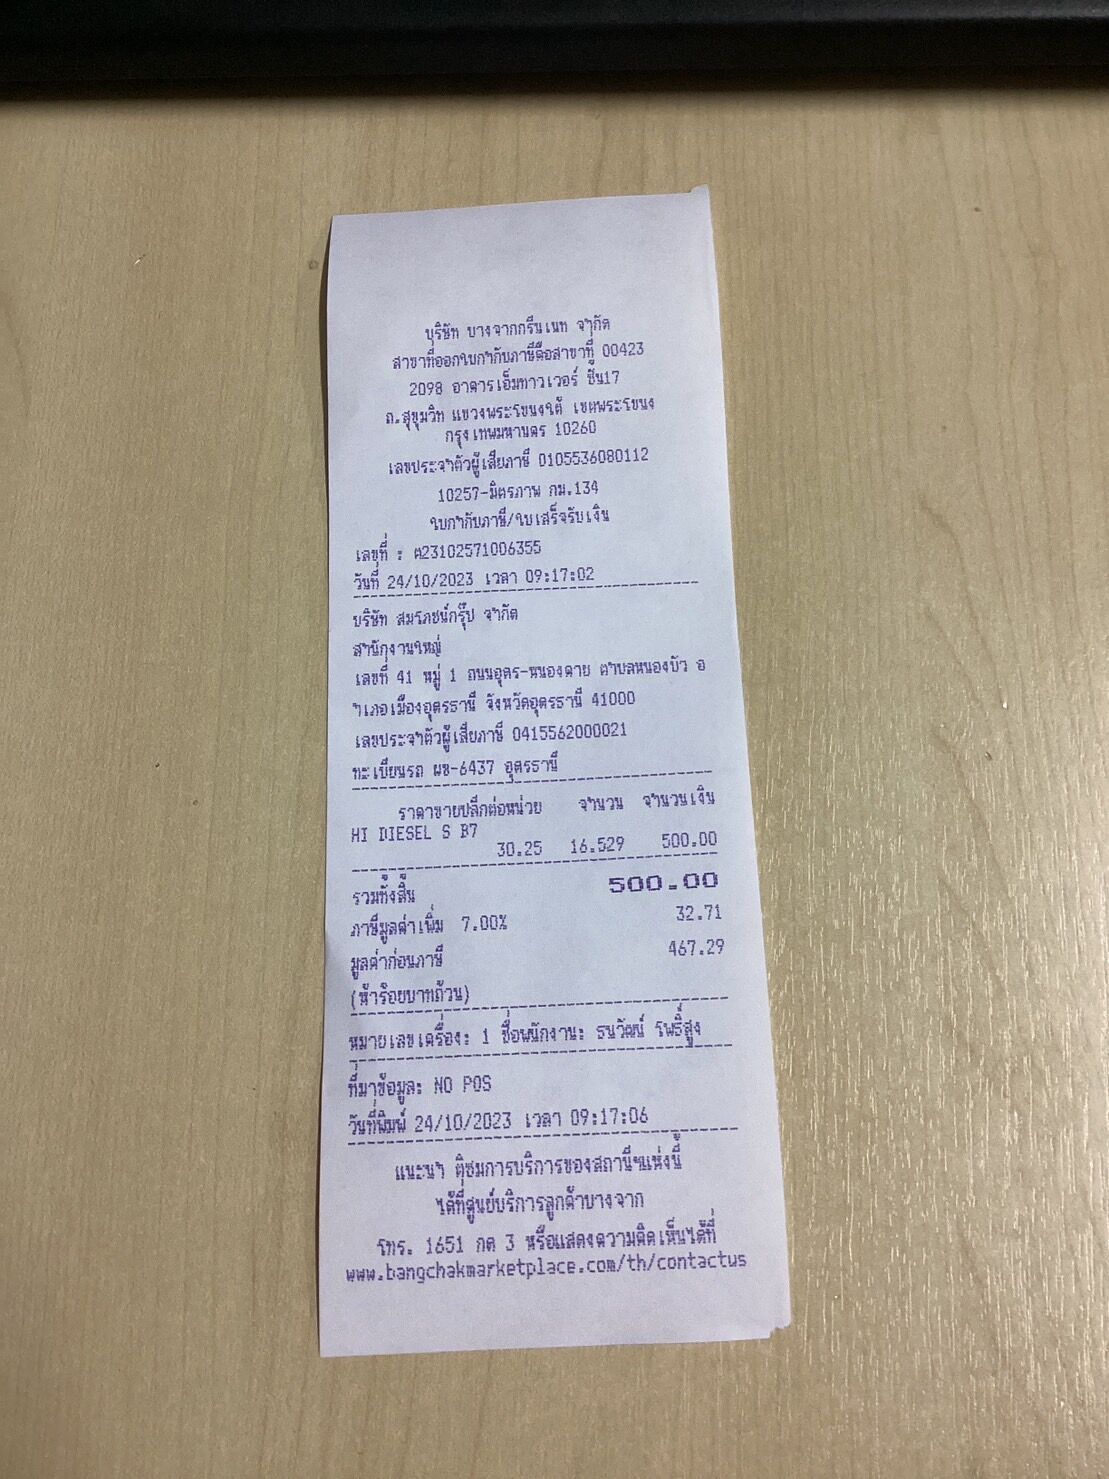 บริษัท บางจากกรีนเนท จำกัด
สาขาที่ออกใบกำกับภาษีคือสาขาที่ 00423
2098 อาคารเอ็มทาวเวอร์ ชั้น17
ถ.สุขุมวิท แขวงพระโขนงใต้ เขตพระโขนง
กรุงเทพมหานคร 10260
เลขประจำตัวผู้เสียภาษี 0105536080112
10257-มิตรภาพ กม.134
ใบกำกับภาษี/ใบเสร็จรับเงิน
เลขที่ : ต23102571006355
วันที่ 24/10/2023 เวลา 09:17:02
บริษัท สมโภชน์กรุ๊ป จำกัด
สำนักงานใหญ่
เลขที่ 41 หมู่ 1 ถนนอุดร-หนองคาย ตำบลหนองบัว อ
ำเภอเมืองอุดรธานี จังหวัดอุดรธานี 41000
เลขประจำตัวผู้เสียภาษี 0415562000021
ทะเบียนรถ ผข-6437 อุดรธานี
ราคาขายปลีกต่อหน่วย จำนวน จำนวนเงิน
HI DIESEL S B7
30.25 16.529 500.00
รวมทั้งสิ้น 500.00
ภาษีมูลค่าเพิ่ม 7.00% 32.71
มูลค่าก่อนภาษี 467.29
(ห้าร้อยบาทถ้วน)
หมายเลขเครื่อง: 1 ชื่อพนักงาน: ธนวัฒน์ โพธิ์สูง
ที่มาข้อมูล: NO POS
วันที่พิมพ์ 24/10/2023 เวลา 09:17:06
แนะนำ ติชมการบริการของสถานีฯแห่งนี้
ได้ที่ศูนย์บริการลูกค้าบางจาก
โทร. 1651 กด 3 หรือแสดงความคิดเห็นได้ที่
www.bangchakmarketplace.com/th/contactus